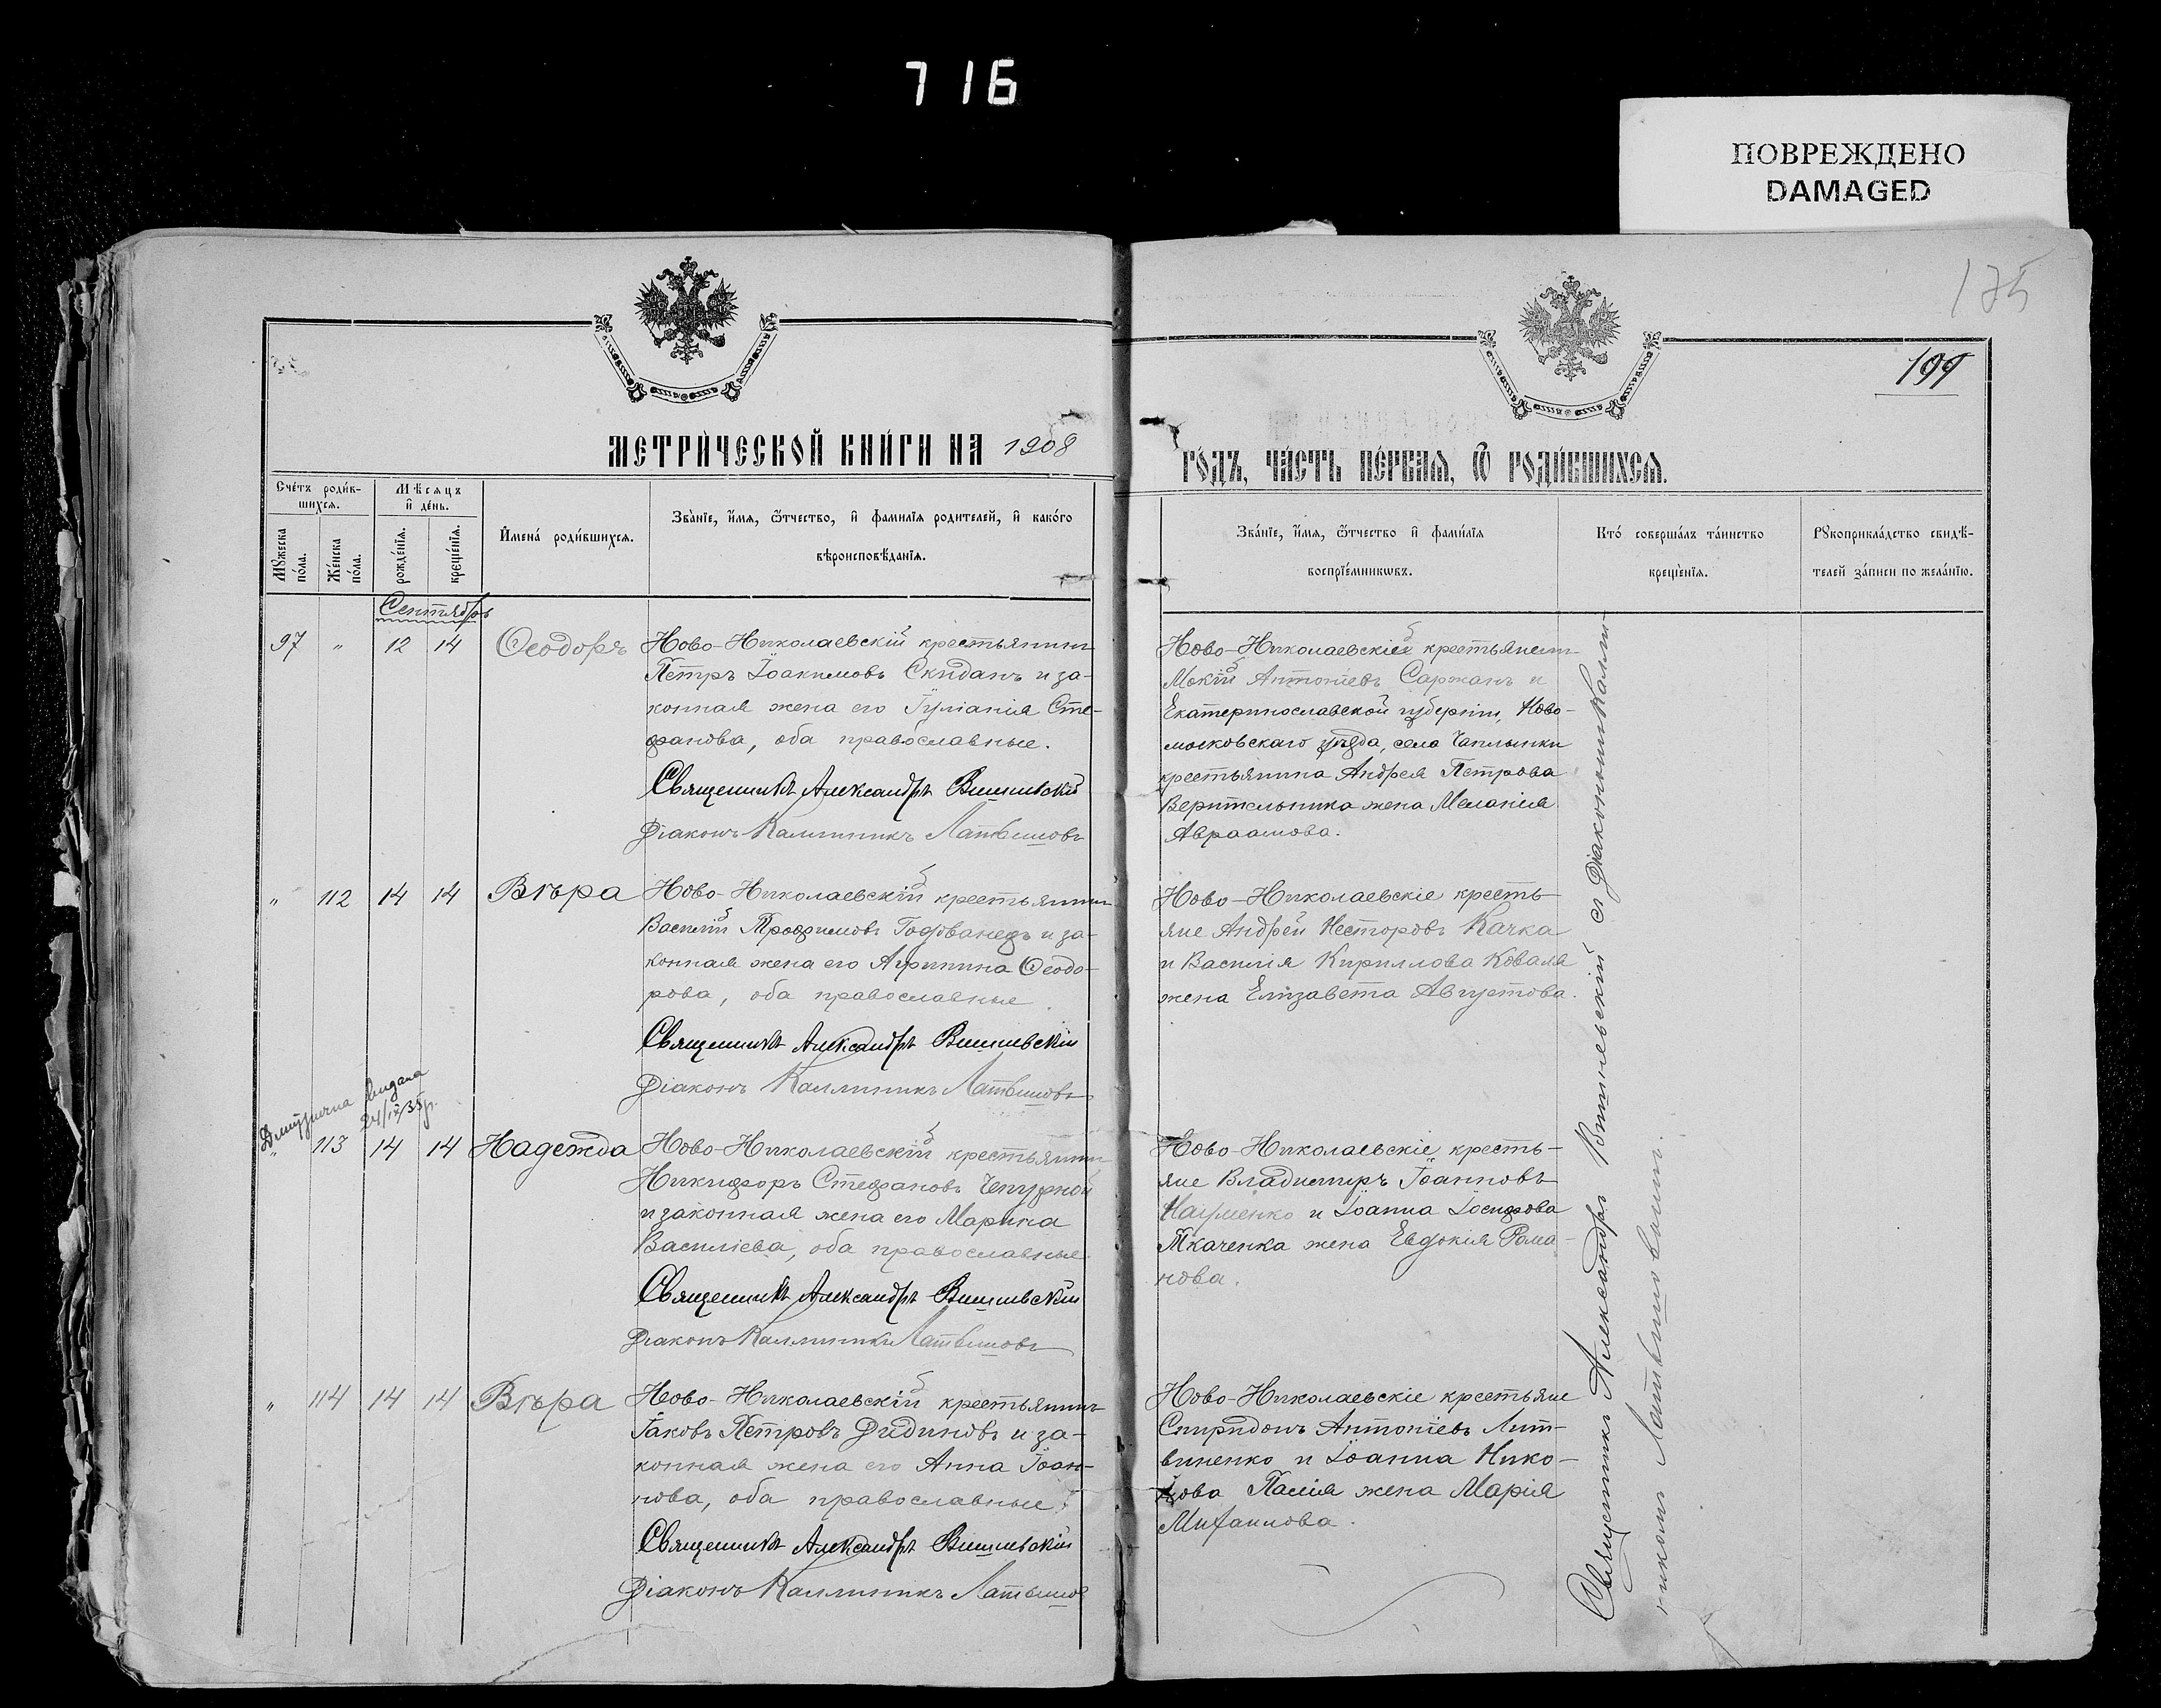 716
ПОВРЕЖДЕНО
DAMAGED
175
199
МЕТРИ́ЧЕСКОЙ КНИ́ГИ НА 1908
ГО́ДЪ, ЧА́СТЬ ПЕ́РВАЯ, Ѿ РОДИ́ВШИХСЯ.
Сче́тъ роди́в-
шихся.
Мѣсяцъ
и де́нь.
Му́жеска
по́ла.
Же́нска
по́ла.
рожде́нїя.
креще́нїя.
И҆мена́ роди́вшихся.
Зва́нїе, и҆́мя, ѻ҆́тчество, и҆ фами́лїя родителей, и҆ како́го
вѣроисповѣ́данїя.
Зва́нїе, и҆́мя, ѻ҆́тчество и҆ фами́лїя
воспрїе́мникѡвъ.
Кто́ соверша́лъ та́инство
креще́нїя.
Рꙋкоприкла́дство свидѣ́-
телей за́писи по жела́нїю.
Сентябрь
97 " 12 14 Ѳеодоръ
Ново-Николаевскій крестьянинъ
Петръ Іоакимовъ Скиданъ и за-
конная жена его Іуліанія Сте-
фанова, оба православные.
Священникъ Александръ Вишневскій
Діаконъ Каллиникъ Латвиновъ
Ново-Николаевскій крестьянинъ
Мокій Антоніевъ Саржанъ и
Екатеринославской губерніи, Ново-
московскаго уѣзда, села Чаплынки
крестьянина Андрея Петрова
Верительника жена Меланія
Авраамова.
" 112 14 14 Вѣра
Ново-Николаевскій крестьянинъ
Василій Трофимовъ Годованецъ и за-
конная жена его Агрипина Ѳеодо-
рова, оба православные.
Священникъ Александръ Вишневскій
Діаконъ Каллиникъ Латвиновъ
Ново-Николаевскіе кресть-
яне Андрей Несторовъ Качка
и Василія Кириллова Коваля
жена Елизавета Августова.
видана
24/IX 35 р.
" 113 14 14 Надежда
Ново-Николаевскій крестьянинъ
Никифоръ Стефановъ Чепурной
и законная жена его Марина
Василіева, оба православные.
Священникъ Александръ Вишневскій
Діаконъ Каллиникъ Латвиновъ
Ново-Николаевскіе кресть-
яне Владимиръ Іоанновъ
Науменко и Іоанна Іосифова
Ткаченка жена Евдокія Рома-
нова.
" 114 14 14 Вѣра
Ново-Николаевскій крестьянинъ
Іаковъ Петровъ Дидиковъ и за-
конная жена его Анна Іоан-
нова, оба православные.
Священникъ Александръ Вишневскій
Діаконъ Каллиникъ Латвинов
Ново-Николаевскіе крестьяне
Спиридонъ Антоніевъ Лит-
виненко и Іоанна Нико-
нова Палія жена Марія
Михаилова.
Священникъ Александръ Вишневскій съ Діакономъ Калли-
никомъ Латвиновымъ.